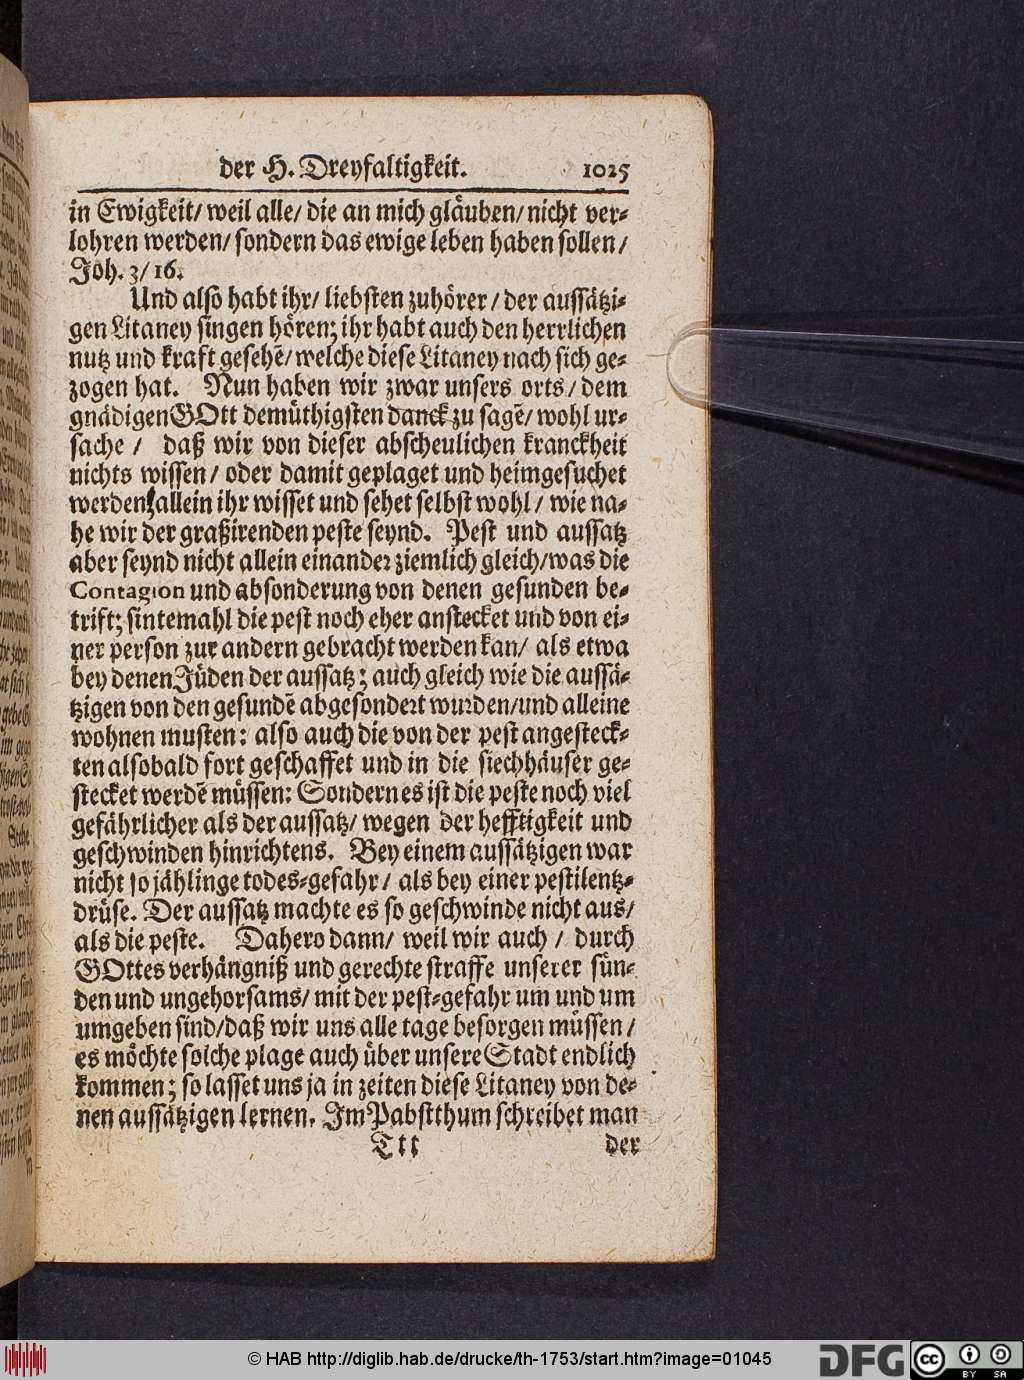 der H. Dreyfaltigkeit. 1025
in Ewigkeit/ weil alle/ die an mich gläuben/ nicht ver-
lohren werden/ sondern das ewige leben haben sollen/
Joh. 3/ 16.
Und also habt ihr/ liebsten zuhörer/ der aussätzi-
gen Litaney singen hören; ihr habt auch den herrlichen
nutz und kraft gesehẽ/ welche diese Litaney nach sich ge-
zogen hat. Nun haben wir zwar unsers orts/ dem
gnädigen GOtt demüthigsten danck zu sagẽ/ wohl ur-
sache/ daß wir von dieser abscheulichen kranckheit
nichts wissen/ oder damit geplaget und heimgesuchet
werden; allein ihr wisset und sehet selbst wohl/ wie na-
he wir der graßirenden peste seynd. Pest und aussatz
aber seynd nicht allein einander ziemlich gleich/ was die
Contagion und absonderung von denen gesunden be-
trift; sintemahl die pest noch eher anstecket und von ei-
ner person zur andern gebracht werden kan/ als etwa
bey denen Jüden der aussatz; auch gleich wie die aussä-
tzigen von den gesundẽ abgesondert wurden/ und alleine
wohnen musten: also auch die von der pest angesteck-
ten alsobald fort geschaffet und in die siechhäuser ge-
stecket werdẽ müssen: Sondern es ist die peste noch viel
gefährlicher als der aussatz/ wegen der hefftigkeit und
geschwinden hinrichtens. Bey einem aussätzigen war
nicht so jählinge todes-gefahr/ als bey einer pestilentz-
drüse. Der aussatz machte es so geschwinde nicht aus/
als die peste. Dahero dann/ weil wir auch/ durch
GOttes verhängniß und gerechte straffe unserer sün-
den und ungehorsams/ mit der pest-gefahr um und um
umgeben sind/ daß wir uns alle tage besorgen müssen/
es möchte solche plage auch über unsere Stadt endlich
kommen; so lasset uns ja in zeiten diese Litaney von de-
nen aussätzigen lernen. Im Pabstthum schreibet man
Ttt der
© HAB http://diglib.hab.de/drucke/th-1753/start.htm?image=01045
DFG
cc
BY SA